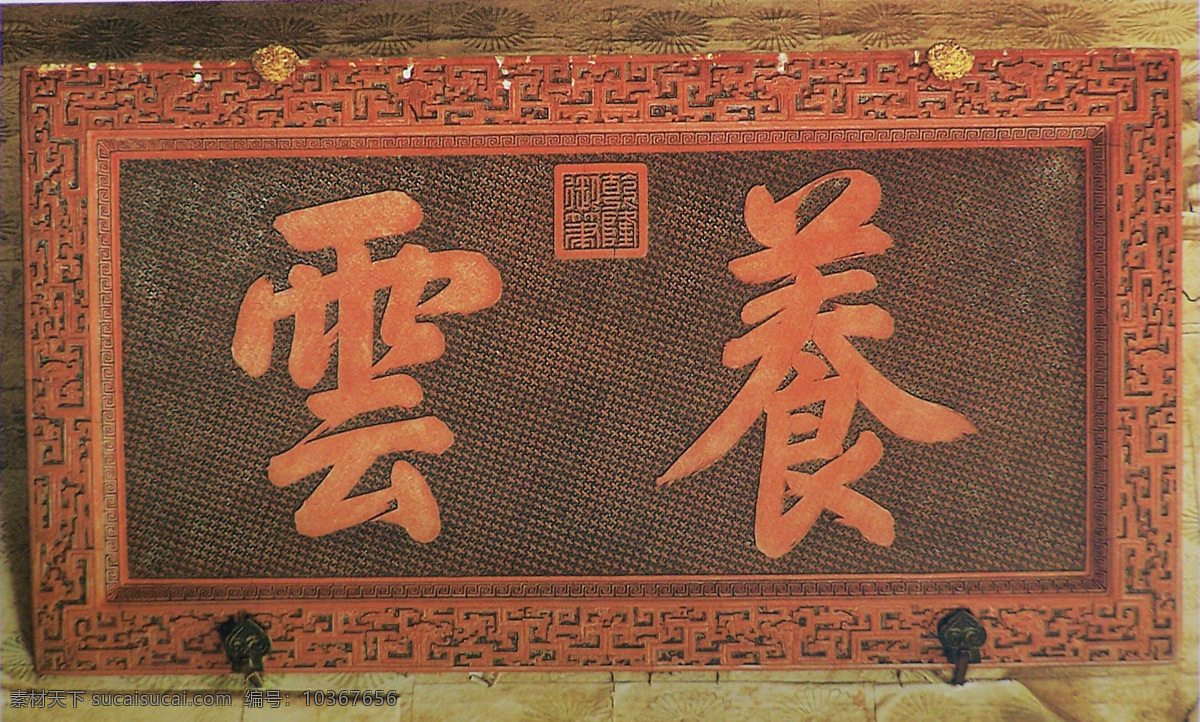 養雲
乾隆御筆
素材天下 sucaisucai.com 编号：10367656